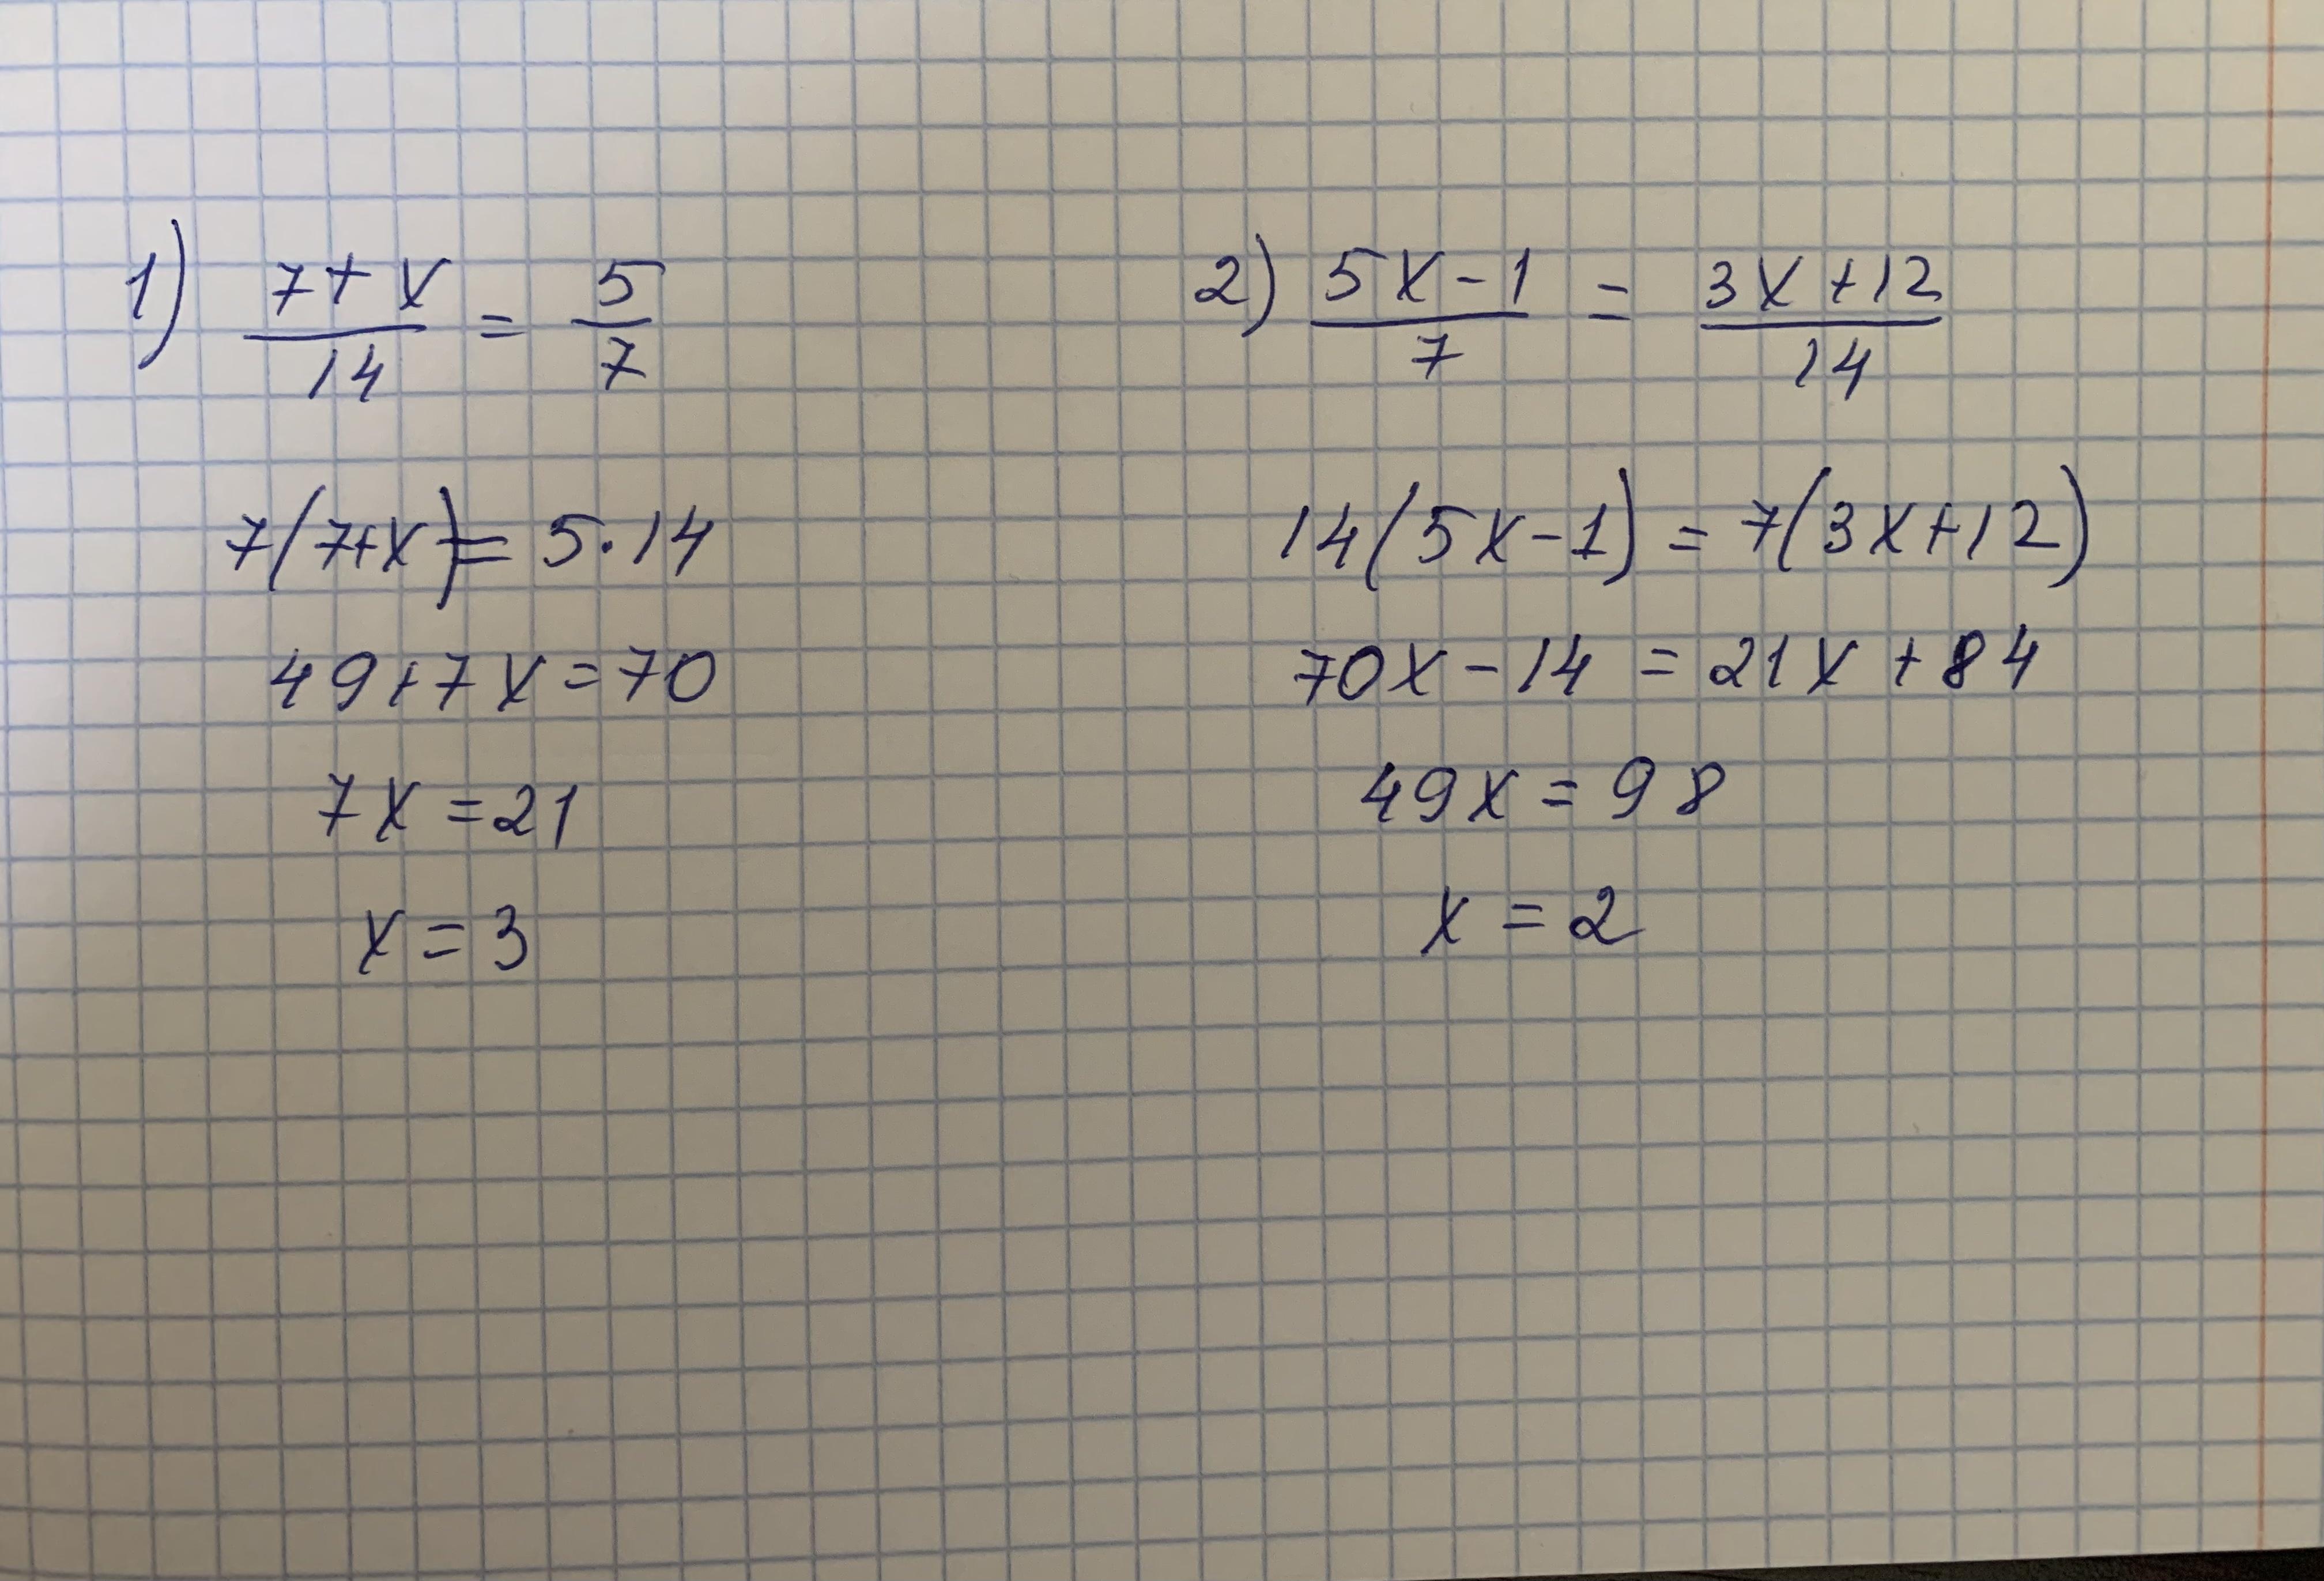 1) (7+x)/14 = 5/7
7(7+x) = 5·14
49+7x=70
7x=21
x=3
2) (5x-1)/7 = (3x+12)/14
14(5x-1) = 7(3x+12)
70x-14 = 21x+84
49x=98
x=2